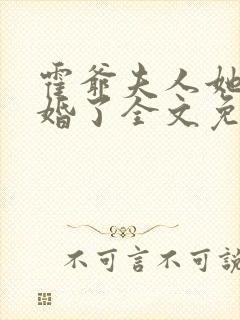 霍爷夫人她
婚了全文免
不可言不可說